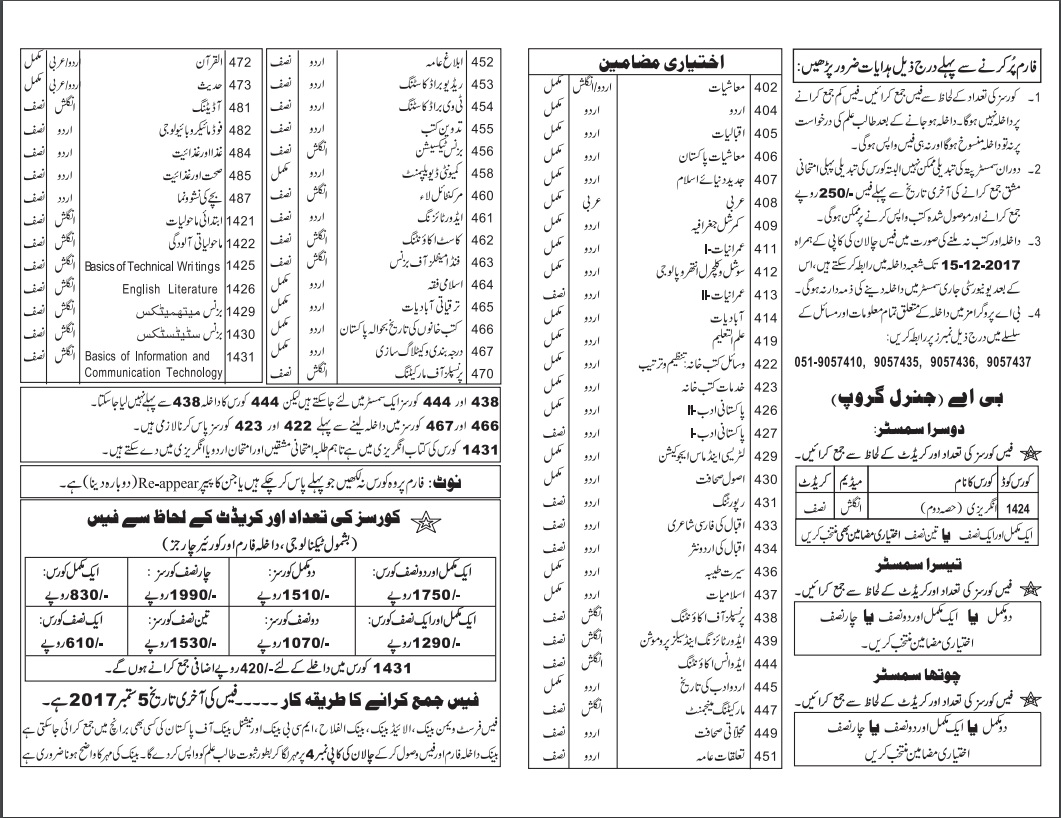 فارم پُر کرنے سے پہلے درج ذیل ہدایات ضرور پڑھیں:
1۔ کورسز کی تعداد کے لحاظ سے فیس جمع کرائیں۔ فیس کم جمع کرانے
پر داخلہ نہیں ہوگا۔ داخلہ ہو جانے کے بعد طالب علم کی درخواست
پر نہ تو داخلہ منسوخ ہوگا اور نہ ہی فیس واپس ہوگی۔
2۔ دوران سمسٹر پتہ کی تبدیلی ممکن نہیں البتہ کورس کی تبدیلی پہلی امتحانی
مشق جمع کرانے کی آخری تاریخ سے پہلے فیس -/250 روپے
جمع کرانے اور موصول شدہ کتب واپس کرنے پر ممکن ہوگی۔
3۔ داخلہ اور کتب نہ ملنے کی صورت میں فیس چالان کی کاپی کے ہمراہ
15-12-2017 تک شعبہ داخلہ میں رابطہ کر سکتے ہیں، اس
کے بعد یونیورسٹی جاری سمسٹر میں داخلہ دینے کی ذمہ دار نہ ہوگی۔
4۔ بی اے پروگرامز میں داخلہ کے متعلق تمام معلومات اور مسائل کے
سلسلے میں درج ذیل نمبرز پر رابطہ کریں:
051-9057410, 9057435, 9057436, 9057437
بی اے (جنرل گروپ)
دوسرا سمسٹر:
فیس کورسز کی تعداد اور کریڈٹ کے لحاظ سے جمع کرائیں۔
کورس کوڈ کورس کا نام میڈیم کریڈٹ
1424 انگریزی (حصہ دوم) انگلش نصف
ایک مکمل اور ایک نصف یا تین نصف اختیاری مضامین بھی منتخب کریں۔
تیسرا سمسٹر
فیس کورسز کی تعداد اور کریڈٹ کے لحاظ سے جمع کرائیں۔
دو مکمل یا ایک مکمل اور دو نصف یا چار نصف
اختیاری مضامین منتخب کریں۔
چوتھا سمسٹر
فیس کورسز کی تعداد اور کریڈٹ کے لحاظ سے جمع کرائیں۔
دو مکمل یا ایک مکمل اور دو نصف یا چار نصف
اختیاری مضامین منتخب کریں
اختیاری مضامین
402 معاشیات اردو/انگلش مکمل
404 اردو اردو مکمل
405 اقبالیات اردو مکمل
406 معاشیات پاکستان اردو مکمل
407 جدید دنیائے اسلام اردو مکمل
408 عربی عربی مکمل
409 کمرشل جغرافیہ اردو مکمل
411 عمرانیات-I اردو مکمل
412 سوشل و کلچرل انتھروپالوجی اردو مکمل
413 عمرانیات-II اردو نصف
414 آبادیات اردو مکمل
419 علم التعلیم اردو مکمل
422 وسائل کتب خانہ: تنظیم و ترتیب اردو مکمل
423 خدمات کتب خانہ اردو مکمل
426 پاکستانی ادب-II اردو مکمل
427 پاکستانی ادب-I اردو نصف
429 لٹریسی اینڈ ماس ایجوکیشن اردو مکمل
430 اصول صحافت اردو نصف
431 رپورٹنگ اردو نصف
433 اقبال کی فارسی شاعری اردو نصف
434 اقبال کی اردو نثر اردو نصف
436 سیرت طیبہ اردو مکمل
437 اسلامیات اردو مکمل
438 پرنسپلز آف اکاؤنٹنگ انگلش نصف
439 ایڈورٹائزنگ اینڈ سیلز پروموشن انگلش نصف
444 ایڈوانس اکاؤنٹنگ انگلش نصف
445 اردو ادب کی تاریخ اردو مکمل
447 مارکیٹنگ مینجمنٹ انگلش نصف
449 مجلاتی صحافت اردو نصف
451 تعلقات عامہ اردو نصف
452 ابلاغ عامہ اردو نصف
453 ریڈیو براڈ کاسٹنگ اردو نصف
454 ٹی وی براڈ کاسٹنگ اردو نصف
455 تدوین کتب اردو نصف
456 بزنس ٹیکسیشن انگلش نصف
458 کمیونٹی ڈویلپمنٹ اردو مکمل
460 مرکنٹائل لاء انگلش نصف
461 ایڈورٹائزنگ اردو نصف
462 کاسٹ اکاؤنٹنگ انگلش نصف
463 فنڈامینٹلز آف بزنس انگلش نصف
464 اسلامی فقہ اردو مکمل
465 ترقیاتی آبادیات اردو مکمل
466 کتب خانوں کی تاریخ بحوالہ پاکستان اردو مکمل
467 درجہ بندی و کیٹلاگ سازی اردو مکمل
470 پرنسپلز آف مارکیٹنگ انگلش نصف
472 القرآن اردو/عربی مکمل
473 حدیث اردو/عربی مکمل
481 آڈیٹنگ انگلش نصف
482 فوڈ مائیکروبائیولوجی اردو نصف
484 غذا اور غذائیت اردو نصف
485 صحت اور غذائیت اردو نصف
487 بچے کی نشوونما اردو نصف
1421 ابتدائی ماحولیات انگلش نصف
1422 ماحولیاتی آلودگی انگلش نصف
1425 Basics of Technical Writings انگلش نصف
1426 English Literature انگلش نصف
1429 بزنس میتھمیٹکس انگلش نصف
1430 بزنس سٹیٹسٹکس انگلش نصف
1431 Basics of Information and انگلش نصف
Communication Technology
438 اور 444 کورسز ایک سمسٹر میں لئے جا سکتے ہیں لیکن 444 کورس کا داخلہ 438 سے پہلے نہیں لیا جا سکتا۔
466 اور 467 کورسز میں داخلہ لینے سے پہلے 422 اور 423 کورسز پاس کرنا لازمی ہیں۔
1431 کورس کی کتاب انگریزی میں ہے تاہم طلبہ امتحانی مشقیں اور امتحان اردو یا انگریزی میں دے سکتے ہیں۔
نوٹ: فارم پر وہ کورس نہ لکھیں جو پہلے پاس کر چکے ہیں یا جن کا پیپر Re-appear (دوبارہ دینا) ہے۔
کورسز کی تعداد اور کریڈٹ کے لحاظ سے فیس
(بشمول ٹیکنالوجی، داخلہ فارم اور کورئیر چارجز)
ایک مکمل اور دو نصف کورس: دو مکمل کورسز: چار نصف کورسز: ایک مکمل کورس:
-/1750 روپے -/1510 روپے -/1990 روپے -/830 روپے
ایک مکمل اور ایک نصف کورس: دو نصف کورسز: تین نصف کورسز: ایک نصف کورس:
-/1290 روپے -/1070 روپے -/1530 روپے -/610 روپے
1431 کورس میں داخلے کے لئے -/420 روپے اضافی جمع کرانے ہوں گے۔
فیس جمع کرانے کا طریقہ کار ۔۔۔۔۔ فیس کی آخری تاریخ 5 ستمبر 2017 ہے۔
فیس فرسٹ ویمن بینک، الائیڈ بینک، بینک الفلاح، ایم سی بی بینک اور نیشنل بینک آف پاکستان کی کسی بھی برانچ میں جمع کرائی جا سکتی ہے
بینک داخلہ فارم اور فیس وصول کر کے چالان کی کاپی نمبر 4 پر مہر لگا کر بطور ثبوت طالب علم کو واپس کر دے گا۔ بینک کی مہر کا واضح ہونا ضروری ہے